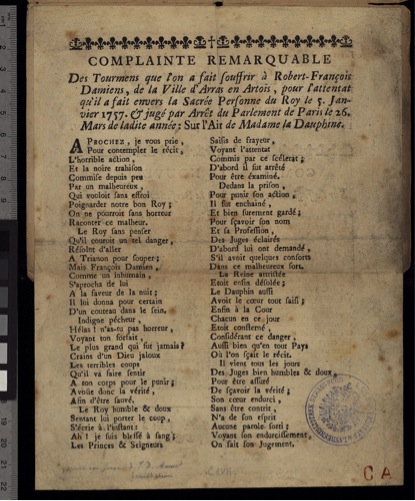 COMPLAINTE REMARQUABLE
Des Tourmens que l'on a fait souffrir à Robert-François
Damiens, de la Ville d'Arras en Artois, pour l'attentat
qu'il a fait envers la Sacrée Personne du Roy le 5. Jan-
vier 1757. & jugé par Arrêt du Parlement de Paris le 26.
Mars de ladite année; Sur l'Air de Madame la Dauphine.
APROCHEZ, je vous prie,
Pour contempler le récit,
L'horrible action,
Et la noire trahison
Commise depuis peu
Par un malheureux,
Qui vouloit sans effroi
Poignarder notre bon Roy;
On ne pourroit sans horreur
Raconter ce malheur.
Le Roy sans penser
Qu'il couroit un tel danger,
Résolut d'aller
A Trianon pour souper;
Mais François Damien,
Comme un inhumain,
S'aprocha de lui
A la faveur de la nuit;
Il lui donna pour certain
D'un couteau dans le sein,
Indigne pécheur,
Hélas! n'as-tu pas horreur,
Voyant ton forfait,
Le plus grand qui fut jamais?
Crains d'un Dieu jaloux
Les terribles coups
Qu'il va faire sentir
A ton corps pour le punir;
Avoüe donc la vérité,
Afin d'être sauvé.
Le Roy humble & doux
Sentant lui porter le coup,
S'écrie à l'instant:
Ah! je suis blessé à sang;
Les Princes & Seigneurs
Saisis de frayeur,
Voyant l'attentat
Commis par ce scélerat;
D'abord il fut arrêté
Pour être éxaminé.
Dedans la prison,
Pour punir son action,
Il fut enchainé,
Et bien surement gardé;
Pour sçavoir son nom
Et sa Profession,
Des Juges éclairés
D'abord lui ont demandé,
S'il avoit quelques consorts
Dans ce malheureux sort.
La Reine attristée
Etoit ensin désolée;
Le Dauphin aussi
Avoit le cœur tout saisi;
Enfin à la Cour
Chacun en ce jour
Etoit consterné,
Considérant ce danger,
Aussi bien qu'en tout Pays
Où l'on sçait le récit.
Il vient tous les jours
Des Juges bien humbles & doux,
Pour être assuré
De sçavoir la vérité;
Son cœur endurci,
Sans être contrit,
N'a de son esprit
Aucune parole sorti;
Voyant son endurcissement,
On fait son Jugement.
C A